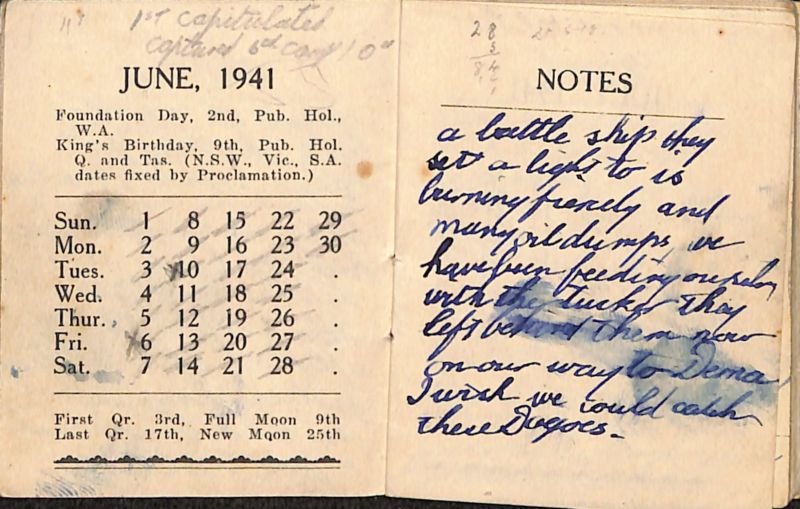 1st capitulated
captured 6th
JUNE, 1941
Foundation Day, 2nd, Pub. Hol.,
W.A.
King's Birthday, 9th, Pub. Hol.
Q. and Tas. (N.S.W., Vic., S.A.
dates fixed by Proclamation.)
Sun. 1 8 15 22 29
Mon. 2 9 16 23 30
Tues. 3 10 17 24 .
Wed. 4 11 18 25 .
Thur. 5 12 19 26 .
Fri. 6 13 20 27 .
Sat. 7 14 21 28 .
First Qr. 3rd, Full Moon 9th
Last Qr. 17th, New Moon 25th
28
3
84
NOTES
a battle ship they
set a light to is
burning fiercly and
many oil dumps we
have been feeding ourselves
with the tucker they
left behind them now
on our way to Derna
I wish we could catch
these Dagoes.